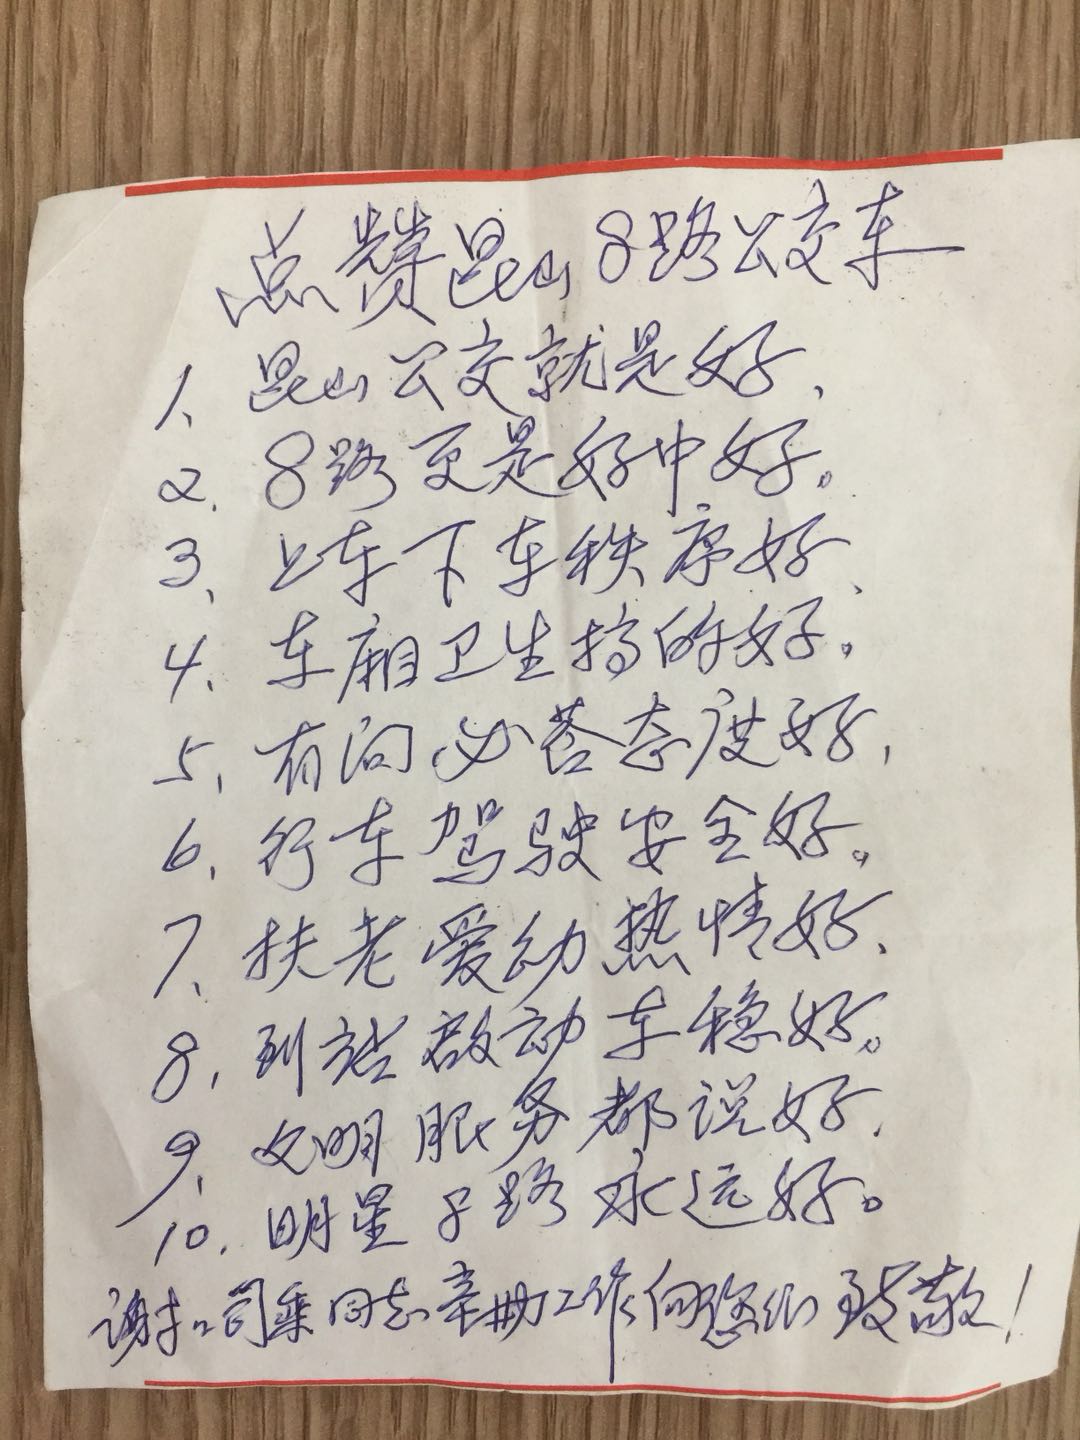 点赞昆山8路公交车
1、昆山公交就是好、
2、8路更是好中好。
3、上车下车秩序好、
4、车厢卫生搞的好。
5、有问必答态度好、
6、行车驾驶安全好。
7、扶老爱幼热情好、
8、到站启动车稳好。
9、文明服务都说好、
10、明星8路永远好。
谢谢司乘同志辛勤工作向您们致敬！